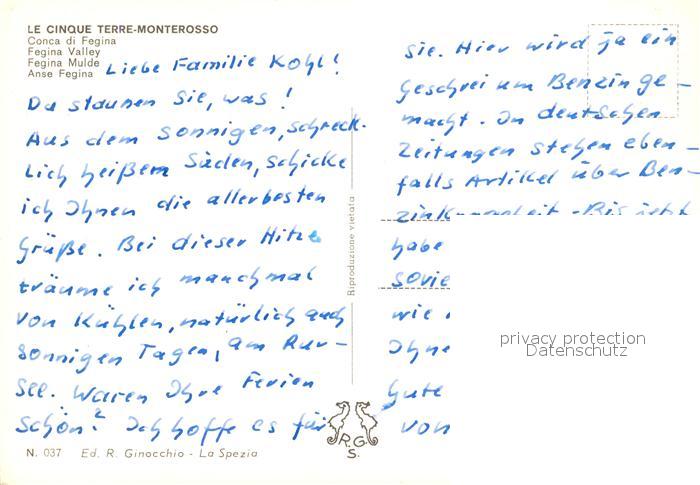 LE CINQUE TERRE-MONTEROSSO
Conca di Fegina
Fegina Valley
Fegina Mulde
Anse Fegina
Liebe Familie Kohl!
Da staunen Sie, was!
Aus dem sonnigen, schreck-
lich heißem Süden, schicke
ich Ihnen die allerbesten
Grüße. Bei dieser Hitze
träume ich manchmal
von kühlen, natürlich auch
sonnigen Tagen, am Rur-
see. Waren Ihre Ferien
schön? Ich hoffe es für
Sie. Hier wird ja ein
Geschrei um Benzin ge-
macht. In deutschen
Zeitungen stehen eben-
falls Artikel über Ben-
habe
sovie
wie
Ihne
Gute
von
Riproduzione vietata
R.G.
S.
N. 037 Ed. R. Ginocchio - La Spezia
privacy protection
Datenschutz